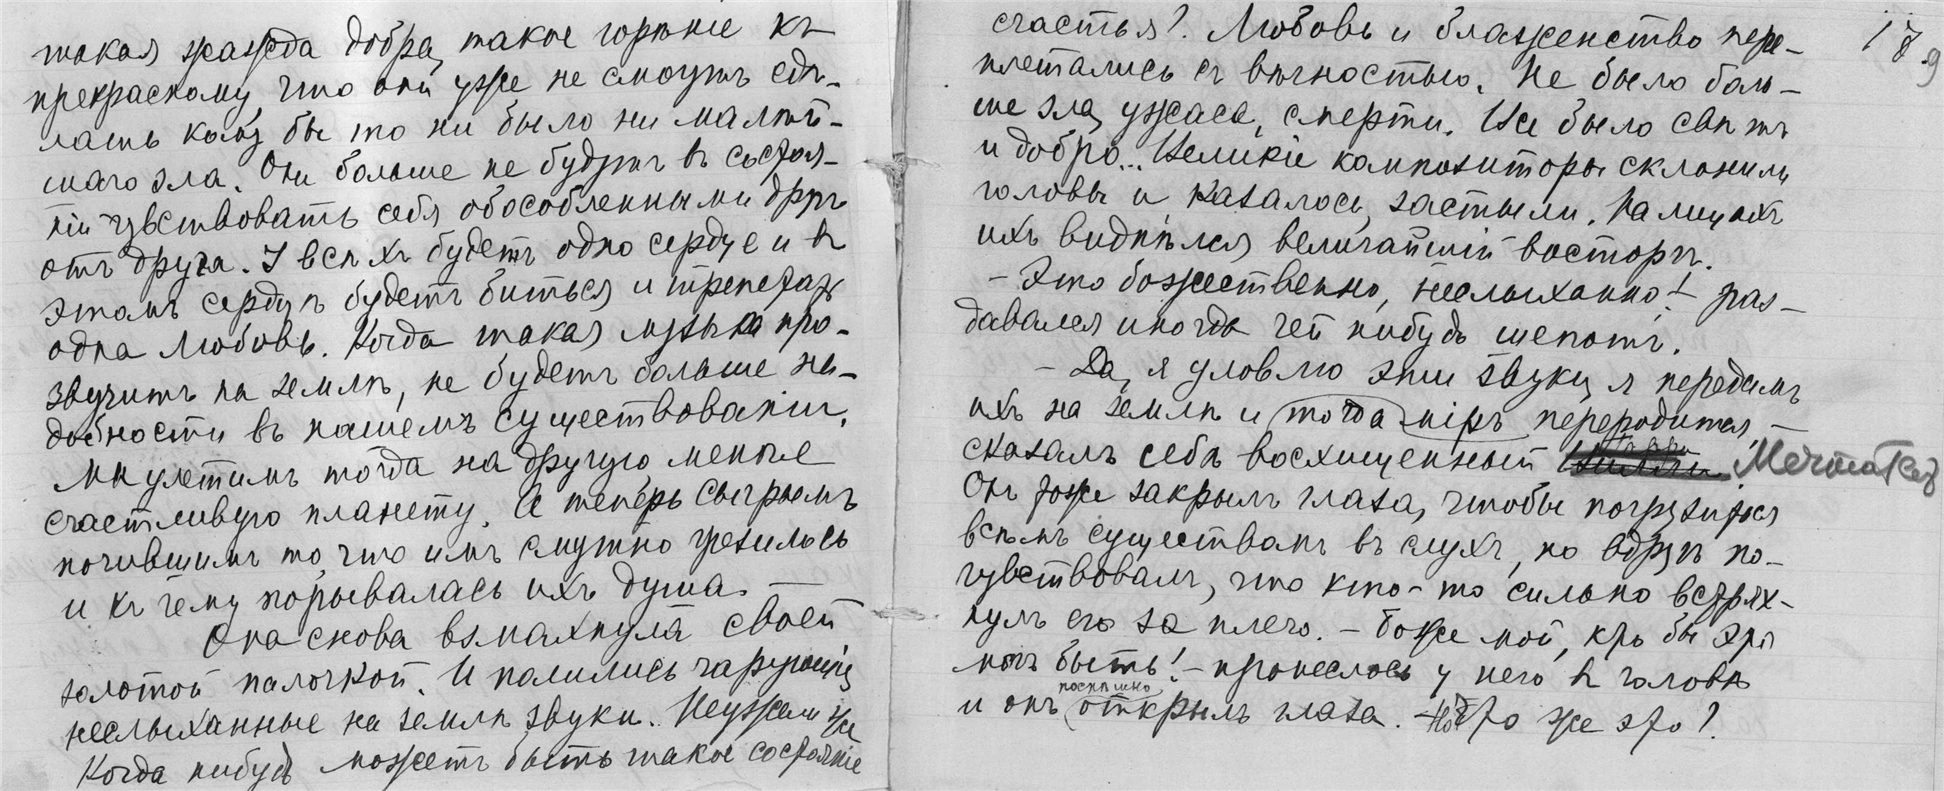 такая жажда добра, такое горѣнie къ
прекрасному, что они уже не смогутъ сдѣ-
лать кому бы то ни было ни малѣй-
шаго зла. Они больше не будутъ въ состоя-
нiи чувствовать себя обособленными другъ
отъ друга. У всѣхъ будетъ одно сердце и въ
этомъ сердцѣ будетъ биться и трепетать
одна любовь. Когда такая музыка про-
звучитъ на землѣ, не будетъ больше на-
добности въ нашемъ существованiи.
Мы улетимъ тогда на другую менѣе
счастливую планету. А теперь сыграемъ
почившимъ то, что имъ смутно грезилось
и къ чему порывалась ихъ душа. —
Она снова взмахнула своей
золотой палочкой. И полились чарующiе
неслыханные на землѣ звуки. Неужели же
когда нибудь можетъ быть такое состоянiе
179
счастья? Любовь и блаженство пере-
плетались съ вѣчностью. Не было боль-
ше зла, ужаса, смерти. Все было свѣтъ
и добро... Великiе композиторы склонили
головы и казалось, застыли. На лицахъ
ихъ виднѣлся величайшiй восторгъ.
— Это божественно, неслыханно! — раз-
давался иногда чей нибудь шепотъ.
— Да, я уловлю эти звуки, я передамъ
ихъ на землѣ и тогда мiръ переродится, —
сказалъ себѣ восхищенный Мечтатель
Онъ тоже закрылъ глаза, чтобы погрузиться
всѣмъ существомъ въ слухъ, но вдругъ по-
чувствовалъ, что кто-то сильно встрях-
нулъ его за плечо. — Боже мой, кто бы это
могъ быть! — пронеслось у него въ головѣ
и онъ поспѣшно открылъ глаза. — Но что же это?